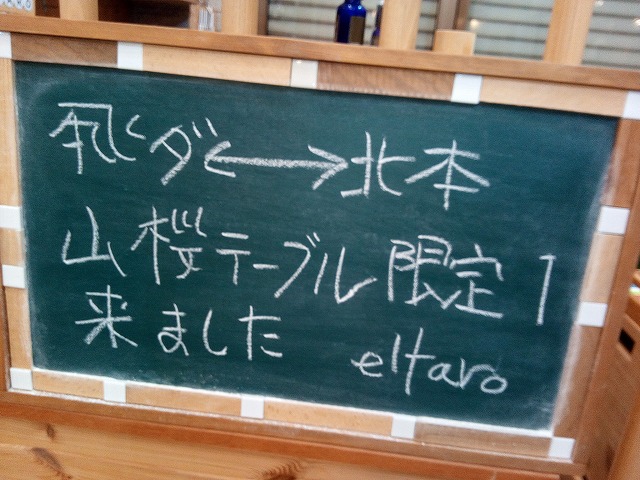 飛ダ⟷北本
山桜テーブル限定1
来ました eltaro